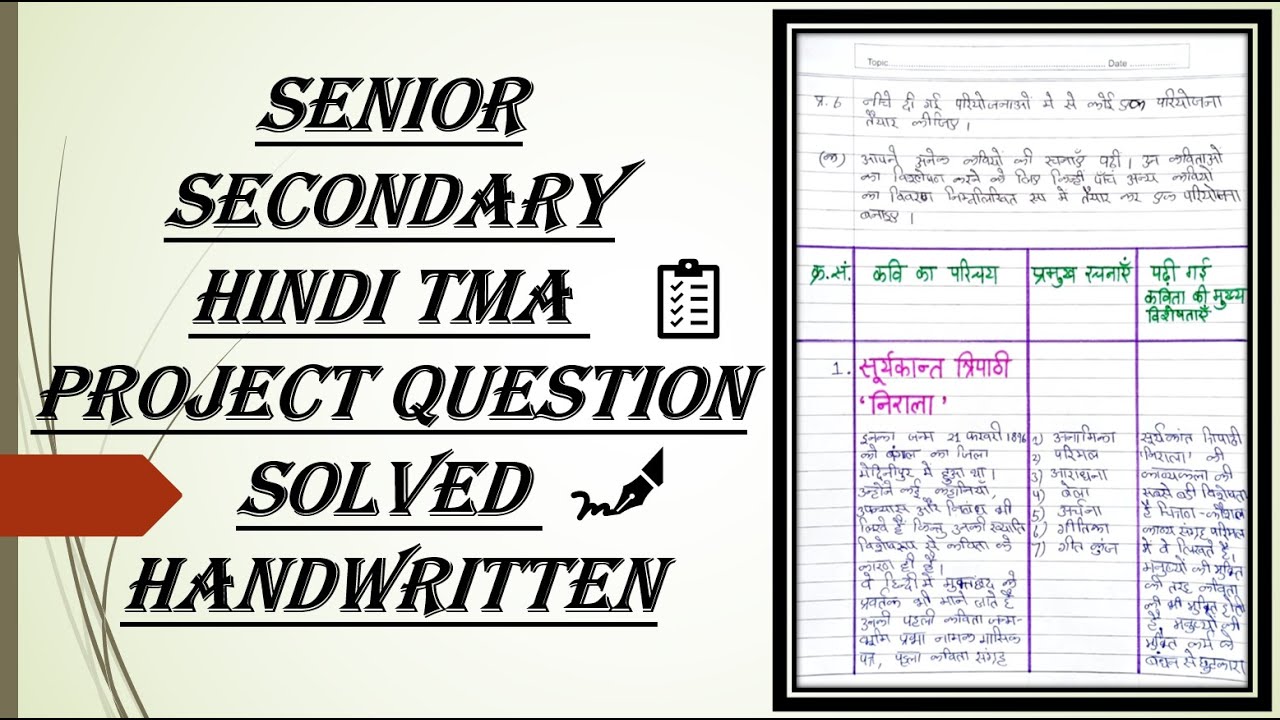 SENIOR
SECONDARY
HINDI TMA
PROJECT QUESTION
SOLVED
HANDWRITTEN
Topic Date
प्र. 6 नीचे दी गई परियोजनाओं में से कोई एक परियोजना
तैयार कीजिए।
(क) आपने अनेक कवियों की रचनाएँ पढ़ी। उन कविताओं
का विश्लेषण करने के लिए किन्हीं पाँच अन्य कवियों
का विवरण निम्नलिखित रूप में तैयार कर एक परियोजना
बनाइए।
क्र.सं. कवि का परिचय प्रमुख रचनाएँ पढ़ी गई
कविता की मुख्य
विशेषताएँ
1. सूर्यकान्त त्रिपाठी
'निराला'
इनका जन्म 21 फरवरी 1896
को बंगाल का जिला
मेदिनीपुर में हुआ था।
उन्होंने कई कहानियाँ,
उपन्यास और निबंध भी
लिखे हैं किन्तु उनकी ख्याति
विशेषरूप से कविता के
कारण ही है।
वे हिन्दी में मुक्तछंद के
प्रवर्तक भी माने जाते हैं
उनकी पहली कविता जन्म-
भूमि प्रभा नामक मासिक
पत्र, पहला कविता संग्रह
1) अनामिका
2) परिमल
3) आराधना
4) बेला
5) अर्चना
6) गीतिका
7) गीत कुंज
सूर्यकांत त्रिपाठी
'निराला' की
काव्यकला की
सबसे बड़ी विशेषता
है चित्रण-कौशल
काव्य संग्रह परिमल
में वे लिखते हैं।
मनुष्यों की मुक्ति
की तरह कविता
की भी मुक्ति होती
है, मनुष्यों की
मुक्ति कर्म के
बंधन से छुटकारा